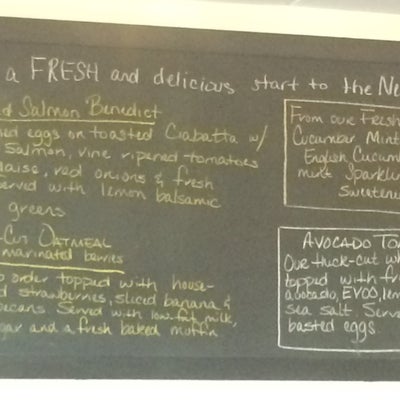 a FRESH and delicious start to the Ne
d Salmon Benedict
ed eggs on toasted Ciabatta w/
Salmon, vine ripened tomatoes
laise, red onions & fresh
served with lemon balsamic
greens
-CUT OATMEAL
marinated berries
o order topped with house-
d strawberries, sliced banana &
pecans. Served with low-fat milk,
gar and a fresh baked muffin
From our Fresh
Cucumber Mint
English Cucum
mint Sparklin
Sweetene
AVOCADO TO
Our thick-cut wh
topped with fr
avocado, EVOO, lem
sea salt. Serv
basted eggs.